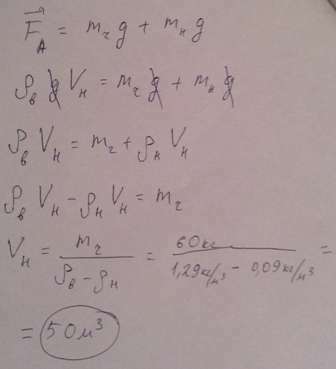 F⃗_A = m_г g + m_н g
ρ_в g V_н = m_г g + m_н g
ρ_в V_н = m_г + ρ_н V_н
ρ_в V_н - ρ_н V_н = m_г
V_н = m_г / (ρ_в - ρ_н) = 60кг / (1,29кг/м³ - 0,09кг/м³) =
= 50м³